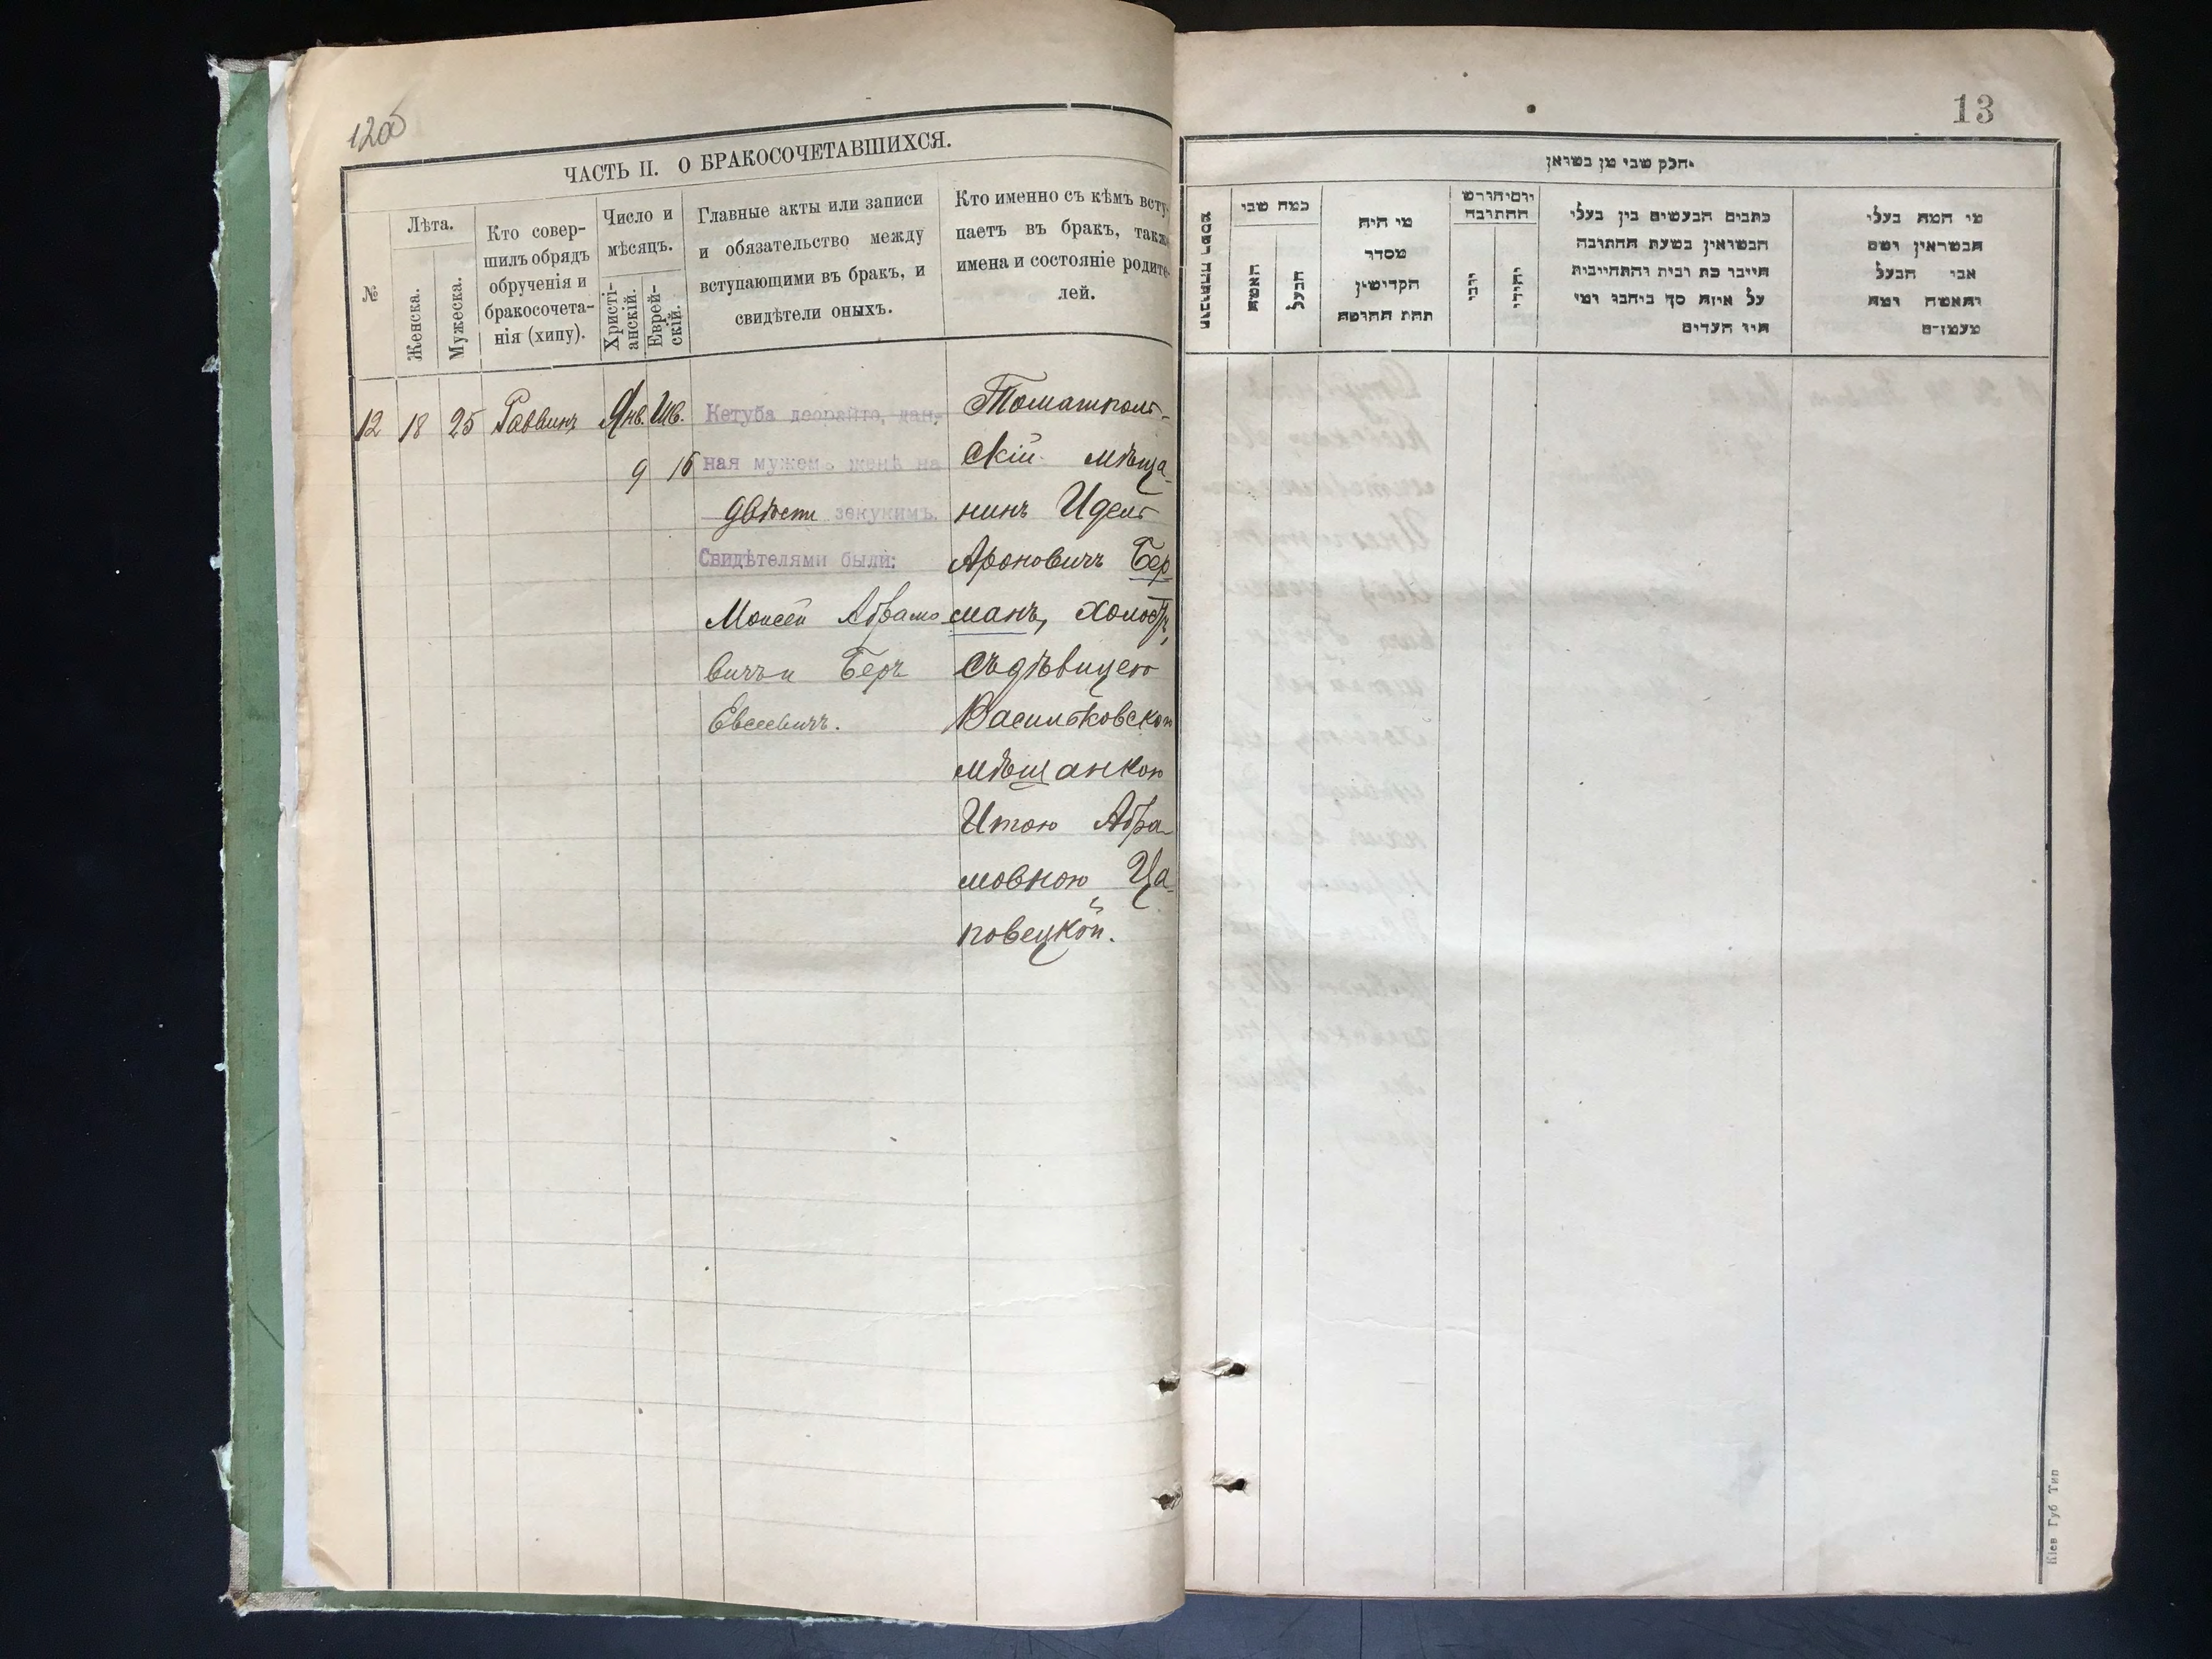 12об
ЧАСТЬ II. О БРАКОСОЧЕТАВШИХСЯ.
№
Лѣта.
Женска.
Мужеска.
Кто совер-
шилъ обрядъ
обрученія и
бракосочета-
нія (хипу).
Число и
мѣсяцъ.
Христі-
анскій.
Еврей-
скій.
Главные акты или записи
и обязательство между
вступающими въ бракъ, и
свидѣтели оныхъ.
Кто именно съ кѣмъ всту-
паетъ въ бракъ, также
имена и состояніе родите-
лей.
12 18 25 Раввинъ Янв. Шв.
9 15
Кетуба деорайто, дан-
ная мужемъ женѣ на
двѣсти зекукимъ.
Свидѣтелями были:
Моисей Абрамо
вичъ и Беръ
Евсеевичъ.
Томашполь-
скій мѣща-
нинъ Идель
Ароновичъ Бер
манъ, холостъ,
съ дѣвицею
Васильковскою
мѣщанкою
Итою Абра-
мовною Ца-
повецкой.
13
חלק שני מן
כמה שני
האשה
הבעל
מי היה
מסדר
הקדושין
תחת החופה
יום וחודש
החתונה
יוני
יהודי
כתבים הנעשים בין בעלי
הנשואין בשעת החתונה
היינו כת ובית והתחייבות
על איזה סך ביחבו ומי
היו העדים
מי המה בעלי
הנשואין ושם
אבי הבעל
והאשה ומה
מעמדם
Кіев Губ Тип